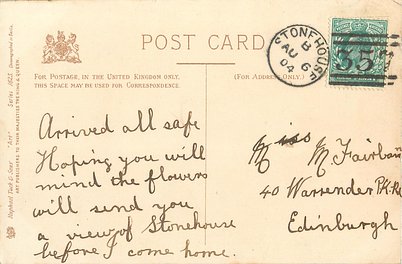 POST CARD
FOR POSTAGE, IN THE UNITED KINGDOM ONLY,
THIS SPACE MAY BE USED FOR CORRESPONDENCE.
(FOR ADDRESS ONLY.)
STONEHOUSE
B
AU 6
04
Arrived all safe
Hoping you will
mind the flowers
will send you
a view of Stonehouse
before I come home.
Miss M Fairbairn
40 Warrender Pk. Rd
Edinburgh
Raphael Tuck & Sons' "Art" Series 1628
ART PUBLISHERS TO THEIR MAJESTIES THE KING & QUEEN.